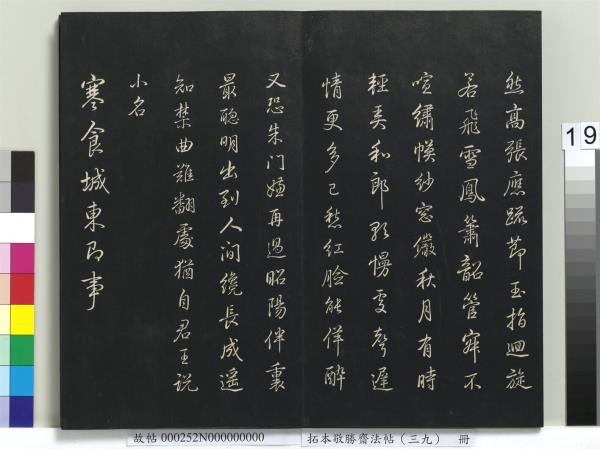 然高張應踈節玉指迴旋
若飛雪鳳簫韶管寂不
喧繡幙紗窗儼秋月有時
輕弄和郎歌慢處聲遲
情更多已愁紅臉能佯醉
又恐朱门嫌再過昭陽伴裏
最聰明出到人间纔長成遥
知禁曲難翻處猶自君王說
小名
寒食城東即事
故帖 000252N000000000
拓本敬勝齋法帖(三九) 冊
19